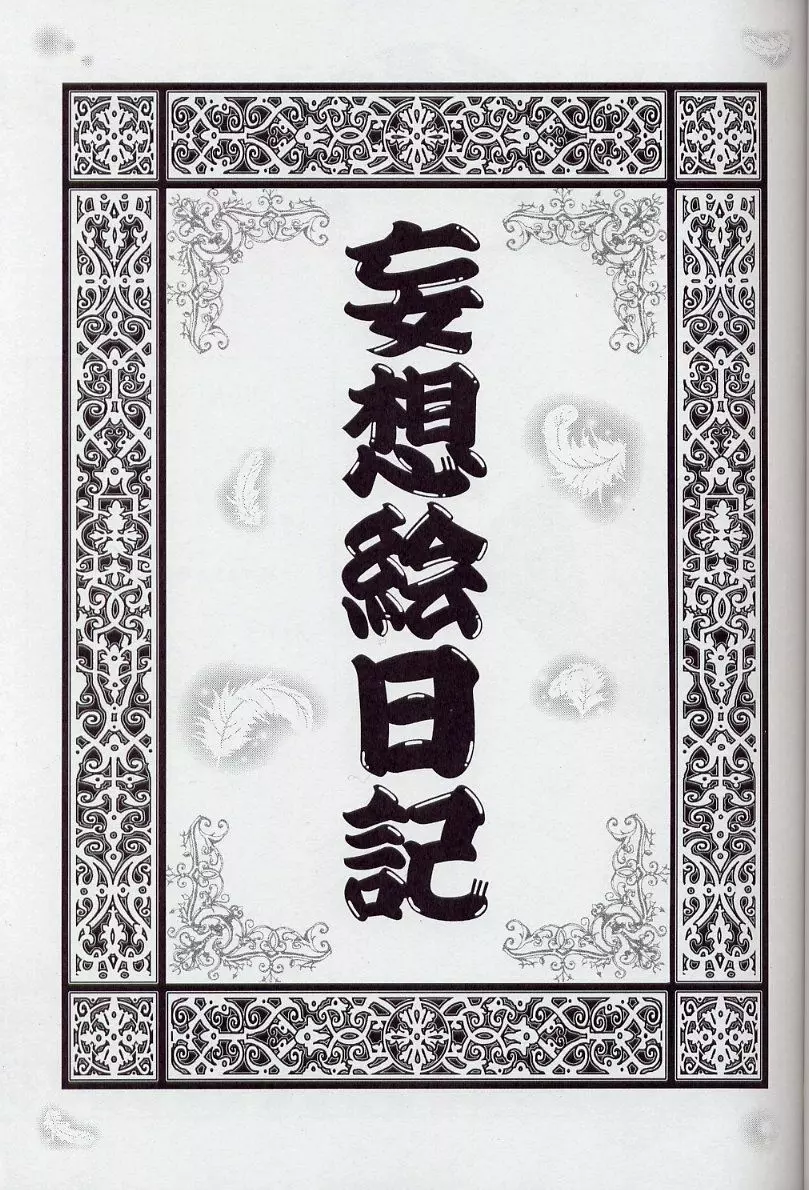 妄想絵日記